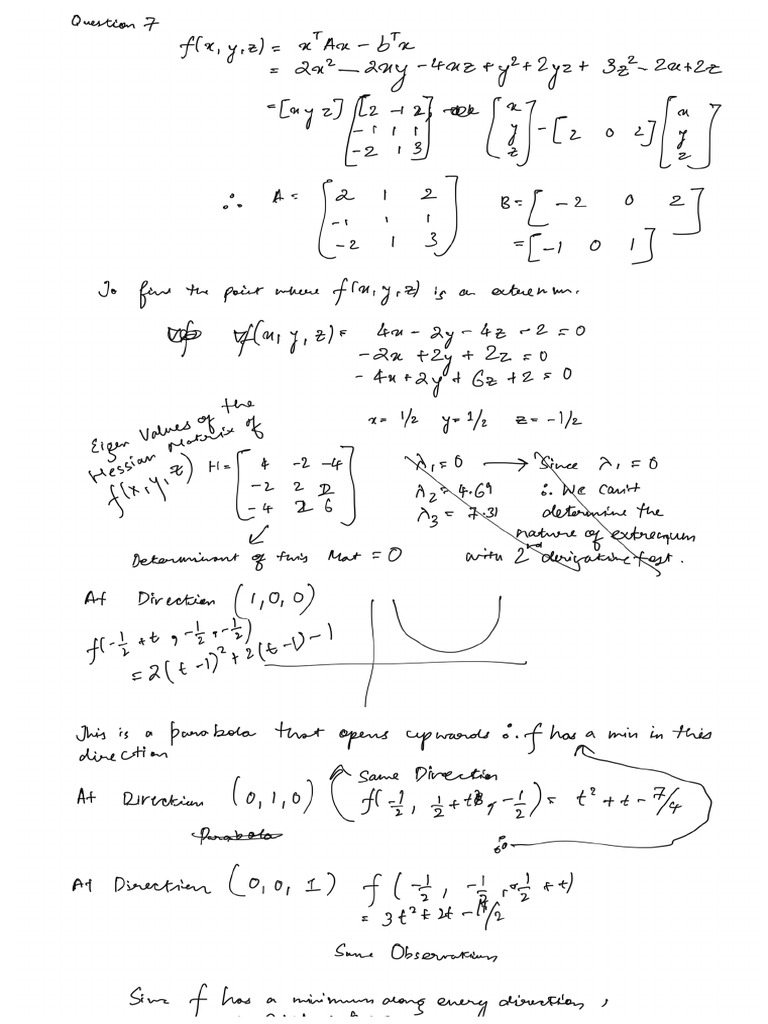 Question 7
f(x, y, z) = xᵀAx − bᵀx
= 2x² − 2xy − 4xz + y² + 2yz + 3z² − 2x + 2z
= [x y z] [2 -1 2 ; -1 1 1 ; -2 1 3] [x ; y ; z] − [2 0 2] [x ; y ; z]
∴ A = [2 1 2 ; -1 1 1 ; -2 1 3] B = [-2 0 2]
= [-1 0 1]
To find the point where f(x, y, z) is an extremum.
∇f(x, y, z) = 4x − 2y − 4z − 2 = 0
− 2x + 2y + 2z = 0
− 4x + 2y + 6z + 2 = 0
x = 1/2 y = 1/2 z = −1/2
Eigen Values of the
Hessian Matrix of
f(x, y, z) H = [4 -2 -4 ; -2 2 2 ; -4 2 6]
λ₁ = 0 → Since λ₁ = 0
λ₂ = 4.69 ∴ We can't
λ₃ = 7.31 determine the
nature of extremum
with 2nd derivative test.
Determinant of this Mat = 0
At Direction (1, 0, 0)
f(-1/2 + t, -1/2, -1/2)
= 2(t −1)² + 2(t −1) − 1
This is a parabola that opens upwards ∴ f has a min in this
direction
Same Direction
At Direction (0, 1, 0) (f(-1/2, 1/2 + t, -1/2) = t² + t − 7/4
Parabola
so
At Direction (0, 0, 1) f(-1/2, -1/2, -1/2 + t)
= 3t² + 2t − /2
Same Observation
Since f has a minimum along every direction,